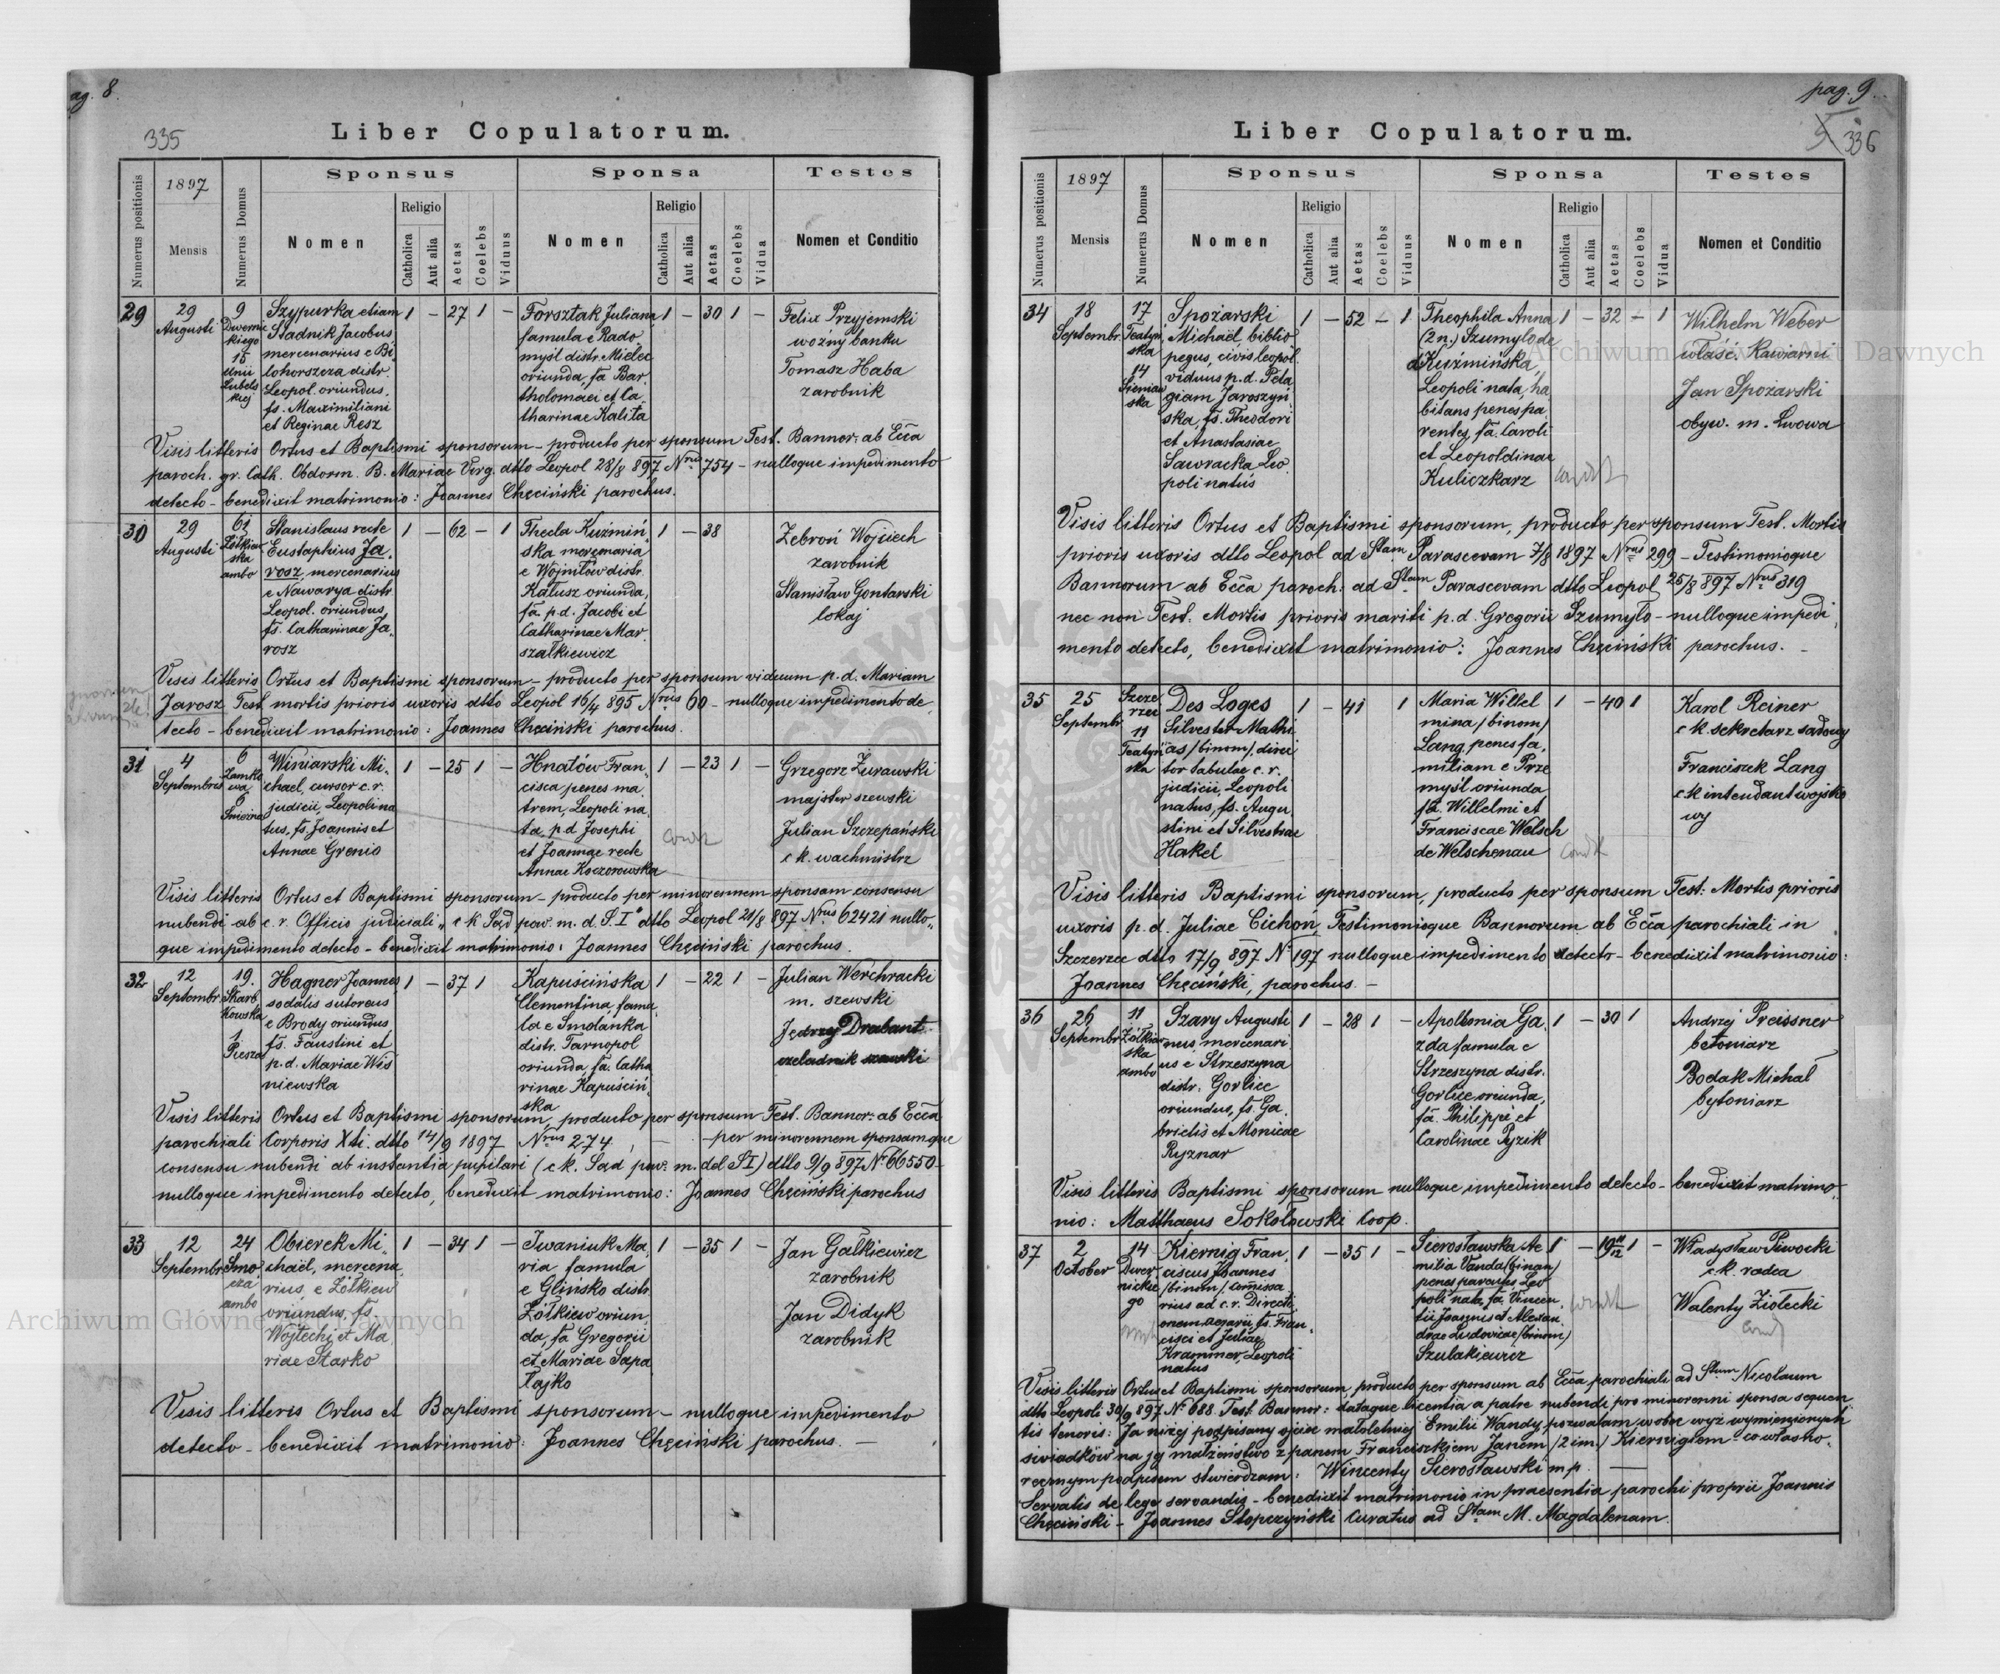 ag. 8.
335
Liber Copulatorum.
Numerus positionis
1897
Mensis
Numerus Domus
Sponsus
Nomen
Religio
Catholica
Aut alia
Aetas
Coelebs
Viduus
Sponsa
Nomen
Religio
Catholica
Aut alia
Aetas
Coelebs
Vidua
Testes
Nomen et Conditio
29
29
Augusti
9
Dwernic
kiego
15
Lubels
kiej
Szypurka etiam
Stadnik Jacobus
mercenarius e Bi
lohorszcza distr.
Leopol. oriundus,
fs. Maximiliani
et Reginae Resz
1 – 27 1 –
Forsztak Juliana
famula e Rado
myśl distr. Mielec
oriunda, fa Bar
tholomaei et Ca
tharinae Kalita
1 – 30 1 –
Felix Przyjemski
wozny banku
Tomasz Haba
zarobnik
Visis litteris Ortus et Baptismi sponsorum – producto per sponsum Test. Bannor. ab Ecca
paroch. gr. Cath. Obdorm. B. Mariae Virg. dtto Leopol 28/8 897 Nrus 754 – nulloque impedimento
detecto – benedixit matrimonio: Joannes Chęciński parochus.
30
29
Augusti
61
Żółkiew
ska
ambo
Stanislaus recte
Eustaphius Ja
rosz, mercenarius
e Nawarya distr.
Leopol. oriundus,
fs. Catharinae Ja
rosz
1 – 62 – 1
Thecla Kuźmiń
ska mercenaria
e Wojniłów distr.
Kałusz oriunda,
fa p.d. Jacobi et
Catharinae Mar
szalkiewicz
1 – 38
Zebroń Wojciech
zarobnik
Stanisław Gontarski
lokaj
Visis litteris Ortus et Baptismi sponsorum – producto per sponsum viduum p.d. Mariam
Jarosz Test mortis prioris uxoris dtto Leopol 16/4 895 Nrus 60 – nulloque impedimento de
tecto – benedixit matrimonio: Joannes Chęciński parochus.
31
4
Septembris
6
Zamko
wa
6
Śnieżna
Winiarski Mi
chael, cursor c.r.
judicii, Leopoli na
tus, fs. Joannis et
Annae Grenio
1 – 25 1 –
Hnatów Fran
cisca penes ma
trem, Leopoli na
ta, p.d. Josephi
et Joannae recte
Annae Koczorowska
1 – 23 1 –
Grzegorz Żurawski
majster szewski
Julian Szczepański
c k. wachmistrz
Visis litteris Ortus et Baptismi sponsorum – producto per minorennem sponsam consensu
nubendi ab c.r. Officio judiciali „c k Sąd pow. m. d. S. I" dtto Leopol 21/8 897 Nrus 62421 nullo
que impedimento detecto – benedixit matrimonio: Joannes Chęciński parochus.
32
12
Septembr.
19.
Skarb
kowska
1
Piesza
Hagner Joannes
sodalis sutoreus
e Brody oriundus
fs. Faustini et
p.d. Mariae Wis
niewska
1 – 37 1
Kapuścińska
Clementina, famu
la e Smolanka
distr. Tarnopol
oriunda, fa. Catha
rinae Kapuściń
ska
1 – 22 1 –
Julian Werchracki
m. szewski
Jędrzej Drabant
czeladnik szewski
Visis litteris Ortus et Baptismi sponsorum, producto per sponsum Test. Bannor: ab Ecca
parochiali Corporis Xti. dtto 14/9 1897 Nrus 274, – per minorennem sponsamque
consensu nubendi ab instantia pupilari (c k. Sąd pow. m. del S I) dtto 9/9 897 N 66550 –
nulloque impedimento detecto, benedixit matrimonio: Joannes Chęciński parochus
33
12
Septembr.
24
Smo
cza
ambo
Obierek Mi
chaël, mercena
rius, e Żółkiew
oriundus, fs.
Wojtechi et Ma
riae Starko
1 – 34 1 –
Iwaniuk Ma
ria famula
e Glińsko distr.
Żółkiew oriun
da, fa Gregorii
et Mariae Sapa
łajko
1 – 35 1 –
Jan Gałkiewicz
zarobnik
Jan Didyk
zarobnik
Visis litteris Ortus et Baptismi sponsorum – nulloque impedimento
detecto – benedixit matrimonio: Joannes Chęciński parochus. –
pag. 9
336
Liber Copulatorum.
Numerus positionis
1897
Mensis
Numerus Domus
Sponsus
Nomen
Religio
Catholica
Aut alia
Aetas
Coelebs
Viduus
Sponsa
Nomen
Religio
Catholica
Aut alia
Aetas
Coelebs
Vidua
Testes
Nomen et Conditio
34
18
Septembr.
17
Teatyń
ska
14
Sieniaw
ska
Spożarski
Michaël, biblio
pegus, civis leopol.
viduus p.d. Pela
giam Jaroszyń
ska, fs. Theodori
et Anastasiae
Sawracka Leo
poli natus
1 – 52 – 1
Theophila Anna
(2 n.) Szumyło de
Kuźmińska,
Leopoli nata, ha
bitans penes pa
rentes, fa. Caroli
et Leopoldinae
Kuliczkarz
1 – 32 – 1
Wilhelm Weber
właśc. Kawiarni
Jan Spożarski
obyw. m. Lwowa
Visis litteris Ortus et Baptismi sponsorum, producto per sponsum Test. Mortis
prioris uxoris dtto Leopol ad Stam Parascevam 7/8 1897 Nrus 299 – Testimonioque
Bannorum ab Ecca paroch: ad Stam Parascevam dtto Leopol 25/8 897 Nrus 319
nec non Test. Mortis prioris mariti p.d. Gregorii Szumyło – nulloque impedi
mento detecto, benedixit matrimonio: Joannes Chęciński parochus. –
35
25
Septembr
Szcze
rzec
11
Teatyń
ska
Des Loges
Silvester Mathi
as /binom/, direc
tor tabulae c.r.
judicii, Leopoli
natus, fs. Augu
stini et Silvestrae
Hakel
1 – 41 1
Maria Willel
mina /binom/
Lang, penes fa
miliam e Prze
myśl oriunda
fa Willelmi et
Franciscae Welsch
de Welschenau
1 – 40 1
Karol Reiner
c k. sekretarz sądowy
Franciszek Lang
c k intendant wojsko
wy
Visis litteris Baptismi sponsorum, producto per sponsum Test: Mortis prioris
uxoris p.d. Juliae Cichon, Testimonioque Bannorum ab Ecca parochiali in
Szczerzec dtto 17/9 897 N 197 nulloque impedimento detecto – benedixit matrimonio:
Joannes Chęciński, parochus. –
36
26
Septembr
11
Żółkiew
ska
ambo
Szary Augusti
nus mercenari
us e Strzeszyna
distr. Gorlice
oriundus, fs. Ga
brielis et Monicae
Ryznar
1 – 28 1 –
Apollonia Ga
zda famula e
Strzeszyna distr.
Gorlice oriunda,
fa. Philippi et
Carolinae Pyzik
1 – 30 1
Andrzej Preissner
betoniarz
Bodak Michał
bytoniarz
Visis litteris Baptismi sponsorum nulloque impedimento detecto – benedixit matrimo
nio: Matthaeus Sokołowski Coop.
37
2
October
14
Dwer
nickie
go
Kiernig Fran
ciscus Joannes
/binom/ commissa
rius ad c.r. Directi
onem aerarii, fs. Fran
cisci et Juliae
Krammer, Leopoli
natus
1 – 35 1 –
Sierosławska Ae
milia Vanda (binom)
penes parentes Leo
poli nata, fa Vincen
tii Joannis et Alexan
drae Ludovicae (binom)
Szulakiewicz
1 – 19 11/12 1 –
Władysław Piwocki
c.k. radca
Walenty Ziołecki
Visis litteris Ortus et Baptismi sponsorum, producto per sponsum ab Ecca parochiali ad Stum Nicolaum
dtto Leopoli 30/9 897 N 688 Test. Bannor: dataque licentia a patre nubendi pro minorenni sponsa sequen
tis tenoris: Ja niżej podpisany ojciec małoletniej Emilii Wandy pozwalam wobec wyż wymienionych
świadków na jej małżeństwo z panem Franciszkiem Janem /2 im./ Kiernigiem – co własno
ręcznym podpisem stwierdzam: Wincenty Sierosławski mp.
Servatis de lege servandis – benedixit matrimonio in praesentia parochi proprii Joannis
Chęciński – Joannes Słopczyński Curatus ad Stam M. Magdalenam.
Archiwum Główne Akt Dawnych
Archiwum Główne Akt Dawnych